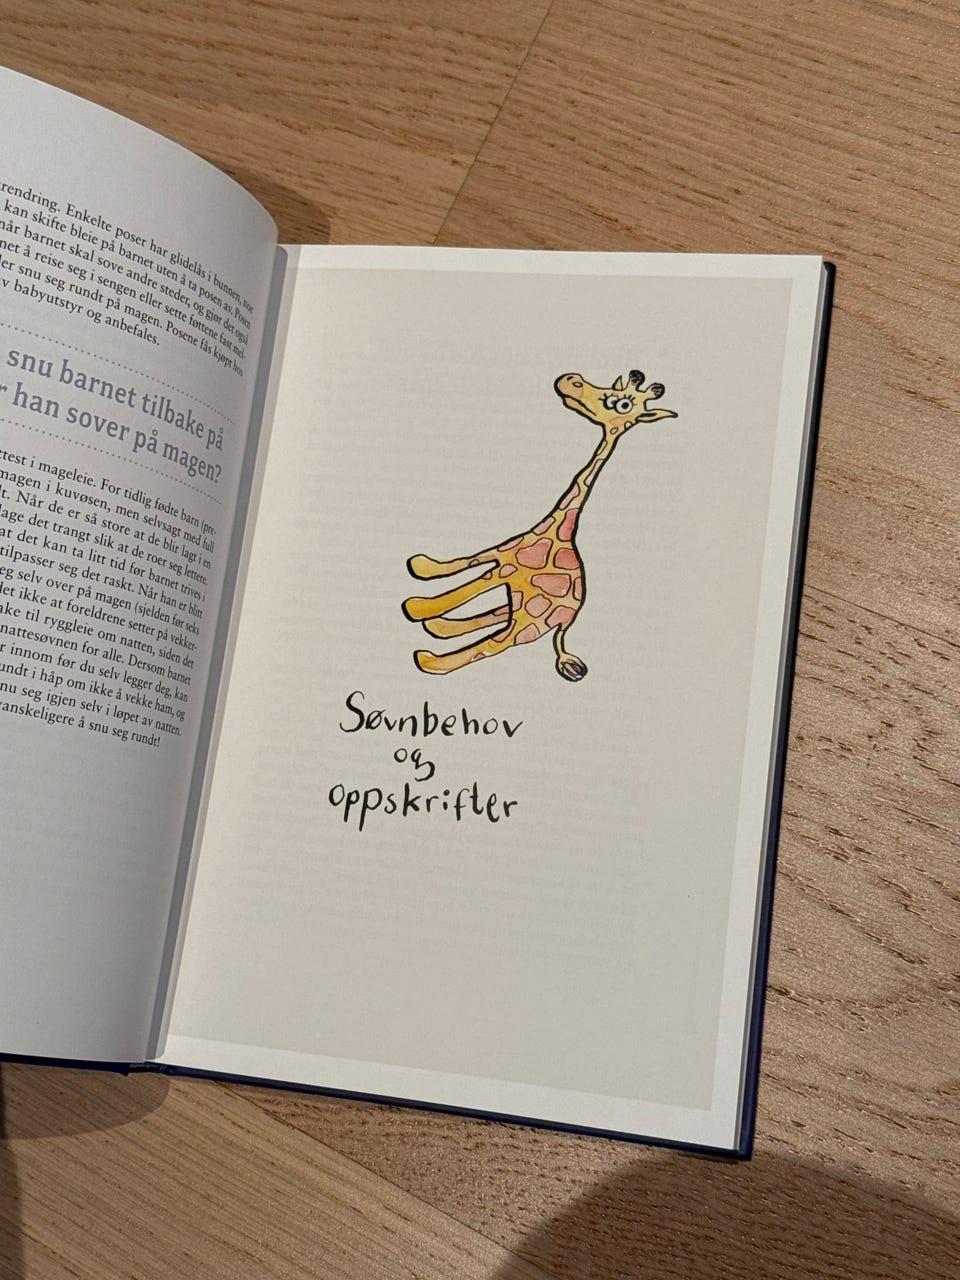 rendring. Enkelte poser har glidelås i bunnen, noe
kan skifte bleie på barnet uten å ta posen av. Posen
når barnet skal sove andre steder, og gjør det også
net å reise seg i sengen eller sette føttene fast mel-
ler snu seg rundt på magen. Posene fås kjøpt hos
v babyutstyr og anbefales.
snu barnet tilbake på
r han sover på magen?
ttest i mageleie. For tidlig fødte barn (pre-
magen i kuvøsen, men selvsagt med full
lt. Når de er så store at de blir lagt i en
lage det trangt slik at de roer seg lettere.
at det kan ta litt tid før barnet trives i
tilpasser seg det raskt. Når han er blitt
eg selv over på magen (sjelden før seks
det ikke at foreldrene setter på vekker-
ake til ryggleie om natten, siden det
nattesøvnen for alle. Dersom barnet
r innom før du selv legger deg, kan
undt i håp om ikke å vekke ham, og
nu seg igjen selv i løpet av natten.
anskeligere å snu seg rundt!
Søvnbehov
og
oppskrifter